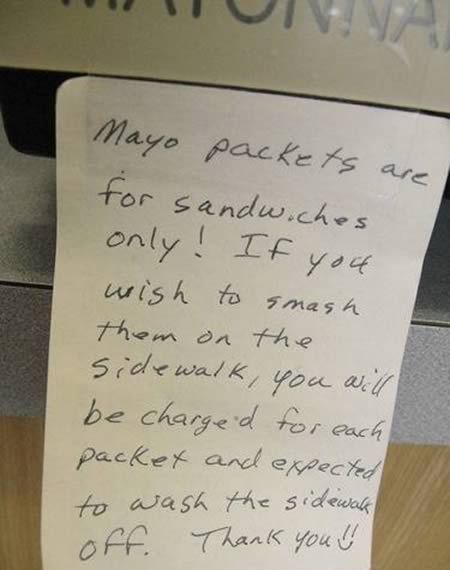 MAYONNA
Mayo packets are
for sandwiches
only! If you
wish to smash
them on the
sidewalk, you will
be charged for each
packet and expected
to wash the sidewalk
off. Thank you!!